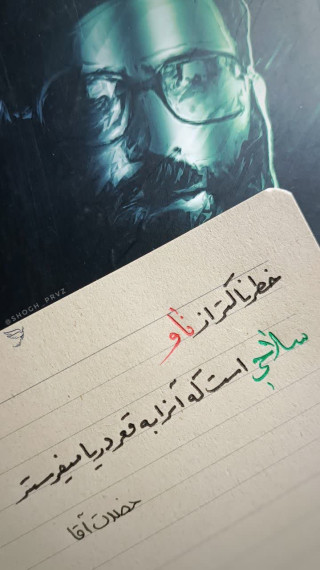 @SHOGH_PRVZ
خطرناکتر از ناو
سلاحی
است که آنرا به قعر دریا میفرستد
حضرت آقا